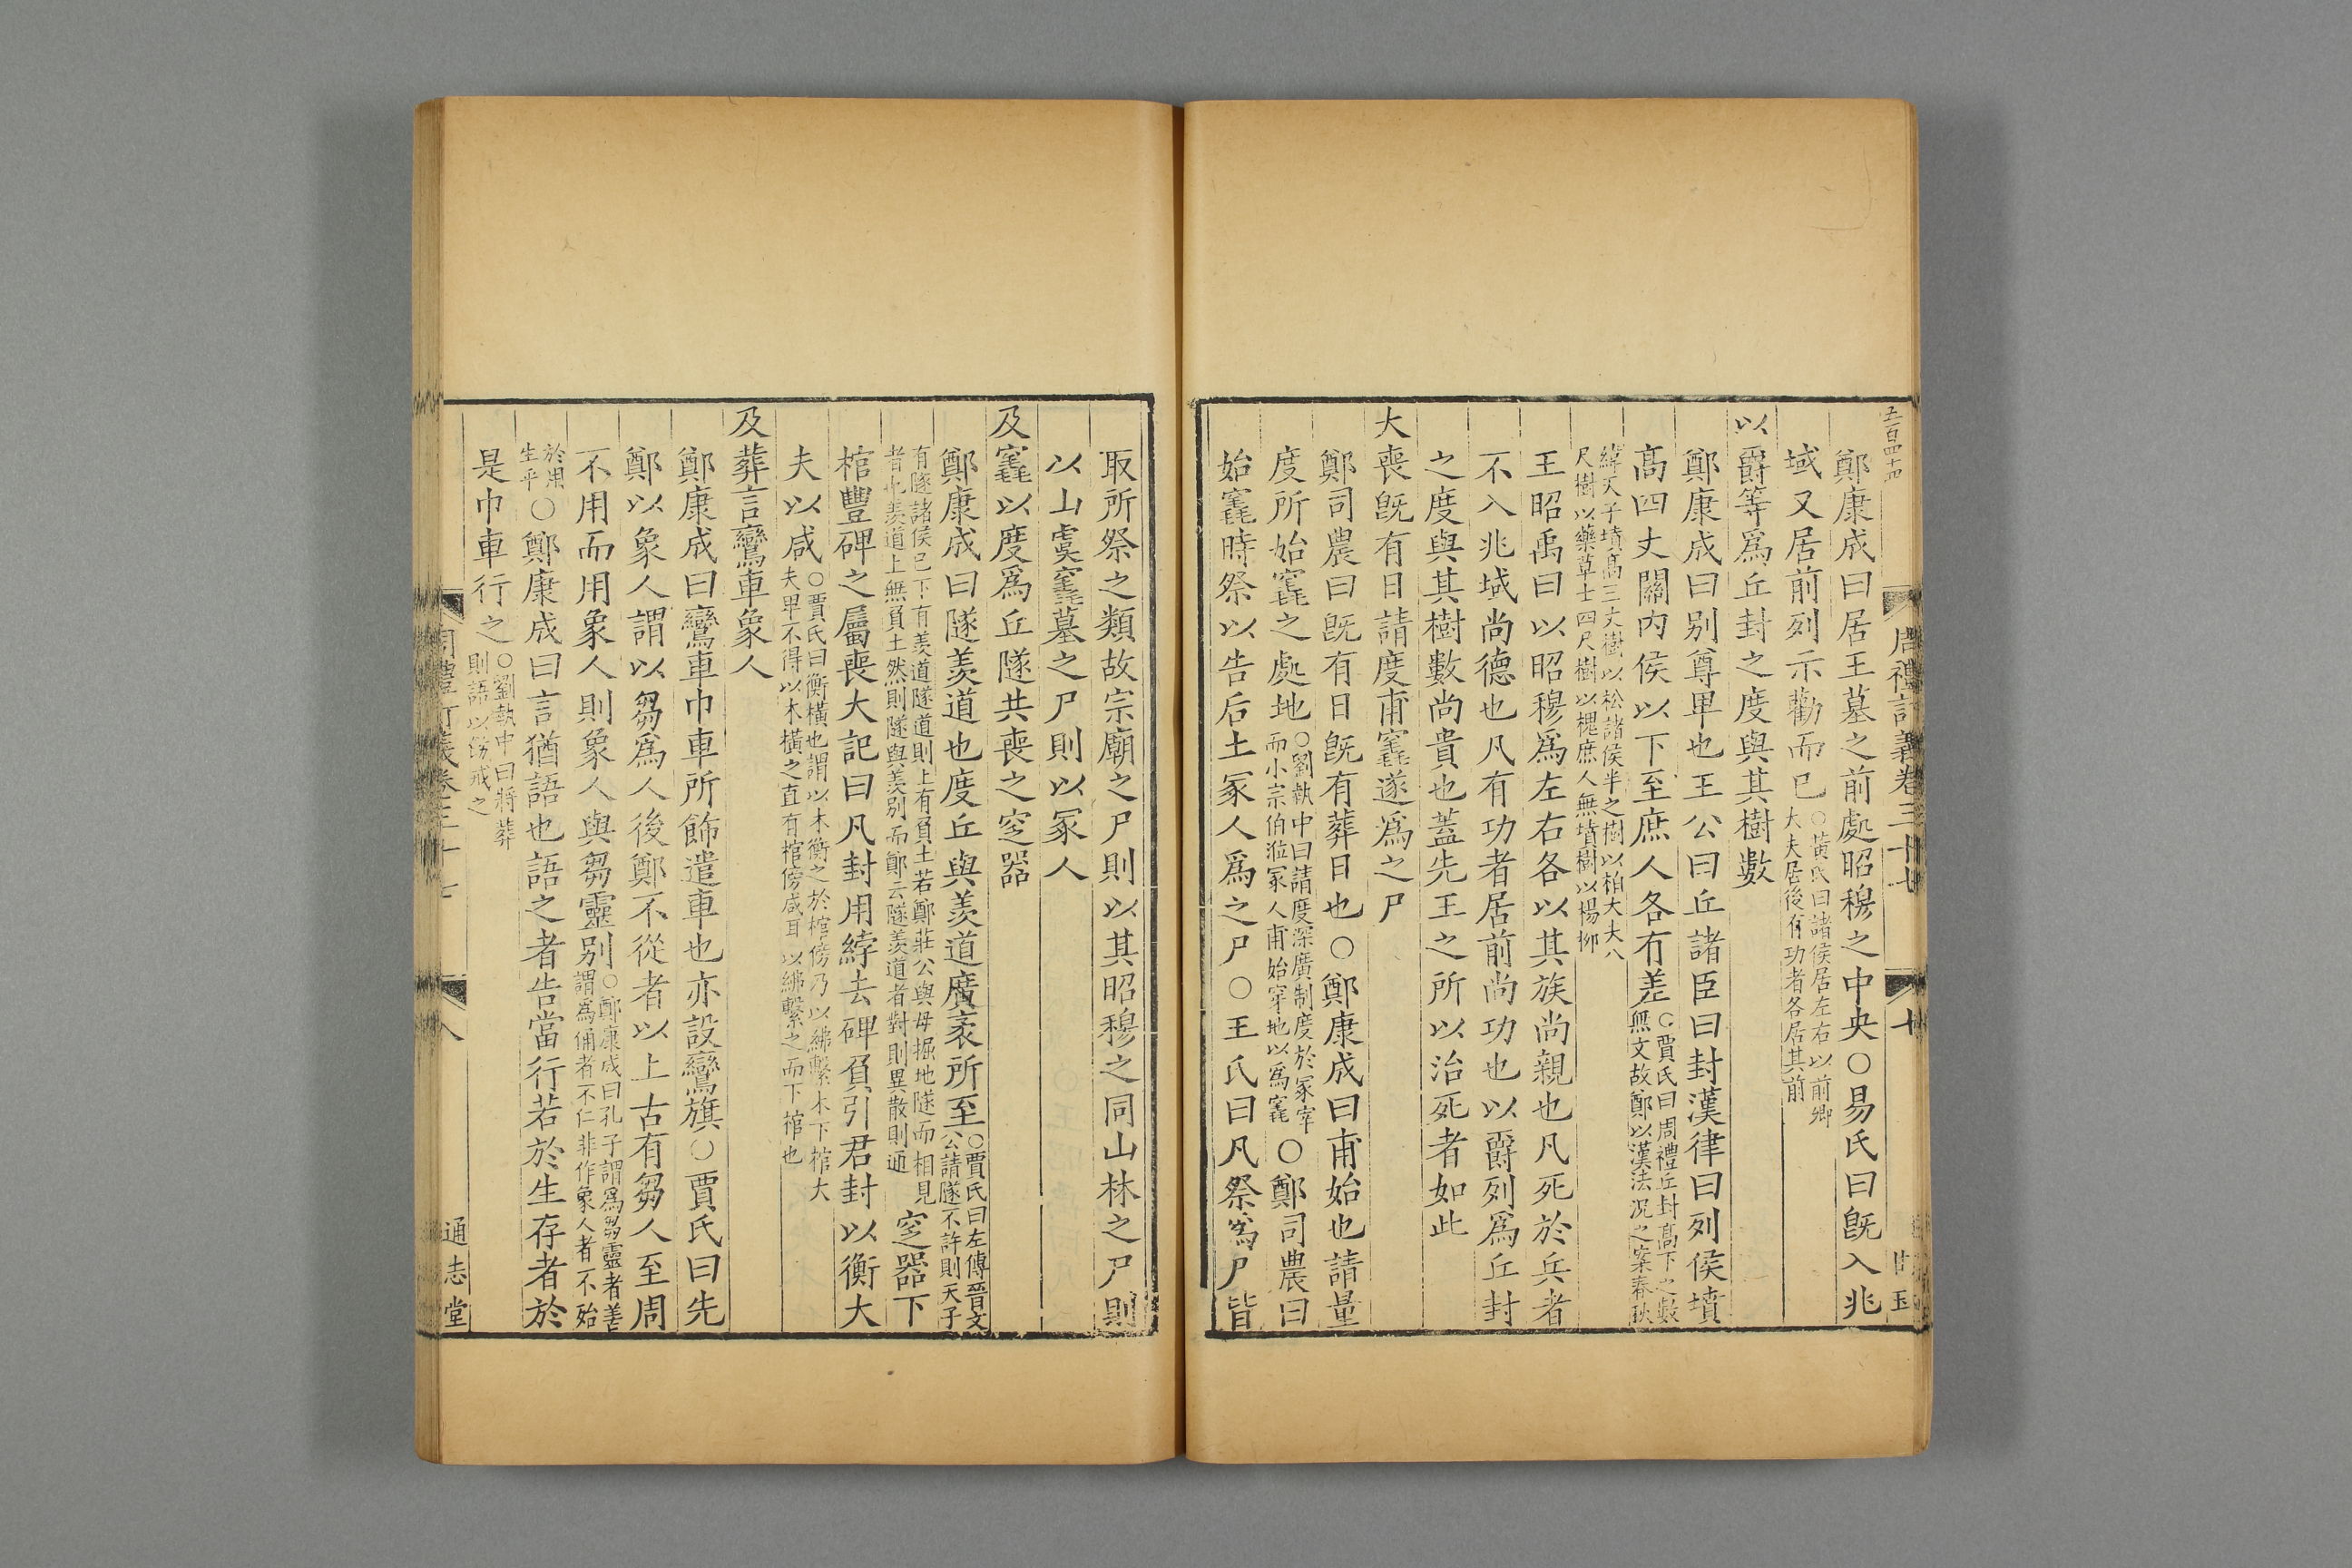 五百四十四
周禮訂義卷三十七
七
甘玉
鄭康成曰居王墓之前處昭穆之中央○易氏曰旣入兆
域又居前列示勸而已○黃氏曰諸侯居左右以前卿
大夫居後有功者各居其前
以爵等爲丘封之度與其樹數
鄭康成曰别尊卑也王公曰丘諸臣曰封漢律曰列侯墳
高四丈關内侯以下至庶人各有差○賈氏曰周禮丘封高下之數
無文故鄭以漢法况之案春秋
緯天子墳高三丈樹以松諸侯半之樹以柏大夫八
尺樹以藥草士四尺樹以槐庶人無墳樹以楊栁
王昭禹曰以昭穆爲左右各以其族尚親也凡死於兵者
不入兆域尚德也凡有功者居前尚功也以爵列爲丘封
之度與其樹數尚貴也蓋先王之所以治死者如此
大喪旣有日請度甫竁遂爲之尸
鄭司農曰旣有日旣有葬日也○鄭康成曰甫始也請量
度所始竁之處地○劉執中曰請度深廣制度於冢宰
而小宗伯涖冢人甫始穿地以爲竁○鄭司農曰
始竁時祭以告后土冢人爲之尸○王氏曰凡祭爲尸皆
取所祭之類故宗廟之尸則以其昭穆之同山林之尸則
以山虞竁墓之尸則以冢人
及竁以度爲丘隧共喪之窆器
鄭康成曰隧羨道也度丘與羨道廣袤所至○賈氏曰左傳晉文
公請隧不許則天子
有隧諸侯已下有羨道隧道則上有負土若鄭莊公與母掘地隧而相見
者也羨道上無負土然則隧與羨别而鄭云隧羨道者對則異散則通
窆器下
棺豐碑之屬喪大記曰凡封用綍去碑負引君封以衡大
夫以咸○賈氏曰衡橫也謂以木衡之於棺傍乃以紼繫木下棺大
夫卑不得以木橫之直有棺傍咸耳以紼繫之而下棺也
及葬言鸞車象人
鄭康成曰鸞車巾車所飾遣車也亦設鸞旗○賈氏曰先
鄭以象人謂以芻爲人後鄭不從者以上古有芻人至周
不用而用象人則象人與芻靈别○鄭康成曰孔子謂爲芻靈者善
謂爲俑者不仁非作象人者不殆
於用
生乎○鄭康成曰言猶語也語之者告當行若於生存者於
是巾車行之○劉執中曰將葬
則語以飭戒之
周禮訂義卷三十七
八
通志堂